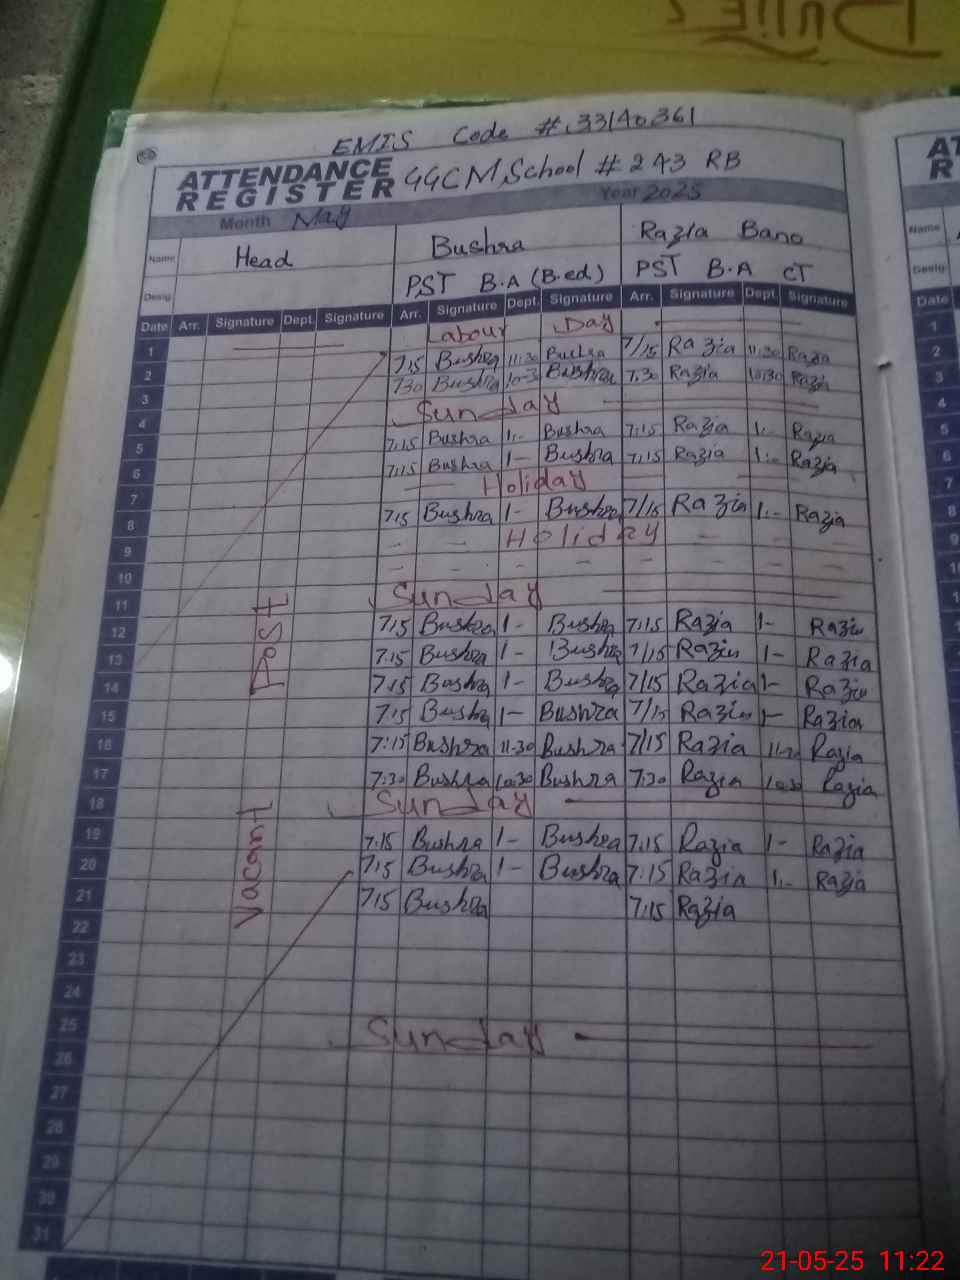 EMIS Code #.33140361
ATTENDANCE REGISTER GGCM, School # 243 RB
Month May Year 2025
Name Head Bushra Razia Bano
Desig. PST B.A (B.ed) PST B.A CT
Date Arr. Signature Dept. Signature Arr. Signature Dept. Signature Arr. Signature Dept. Signature
1 Labour Day
2 7:15 Bushra 11:30 Bushra 7/15 Razia 11:30 Razia
3 7:30 Bushra 10-30 Bushra 7:30 Razia 10:30 Razia
4 Sunday
5 7:15 Bushra 1:- Bushra 7:15 Razia 1:- Razia
6 7:15 Bushra 1- Bushra 7:15 Razia 1:- Razia
7 Holiday
8 7:15 Bushra 1- Bushra 7/15 Razia 1:- Razia
9 - - Holiday - -
10 - - - - - - - -
11 Sunday
12 7:15 Bushra 1- Bushra 7:15 Razia 1- Razia
13 7:15 Bushra 1- Bushra 7/15 Razia 1- Razia
14 7:15 Bushra 1- Bushra 7/15 Razia 1- Razia
15 7:15 Bushra 1- Bushra 7/15 Razia 1- Razia
16 7:15 Bushra 11-30 Bushra 7/15 Razia 11-30 Razia
17 7:30 Bushra 10:30 Bushra 7:30 Razia 10:30 Razia
18 Sunday
19 7:15 Bushra 1- Bushra 7:15 Razia 1- Razia
20 7:15 Bushra 1- Bushra 7:15 Razia 1:- Razia
21 7:15 Bushra 7:15 Razia
22
23
24
25 Sunday
26
27
28
29
30
31
Vacant Post
Name
Desig:
Date
1
2
3
4
5
6
7
8
9
21-05-25 11:22